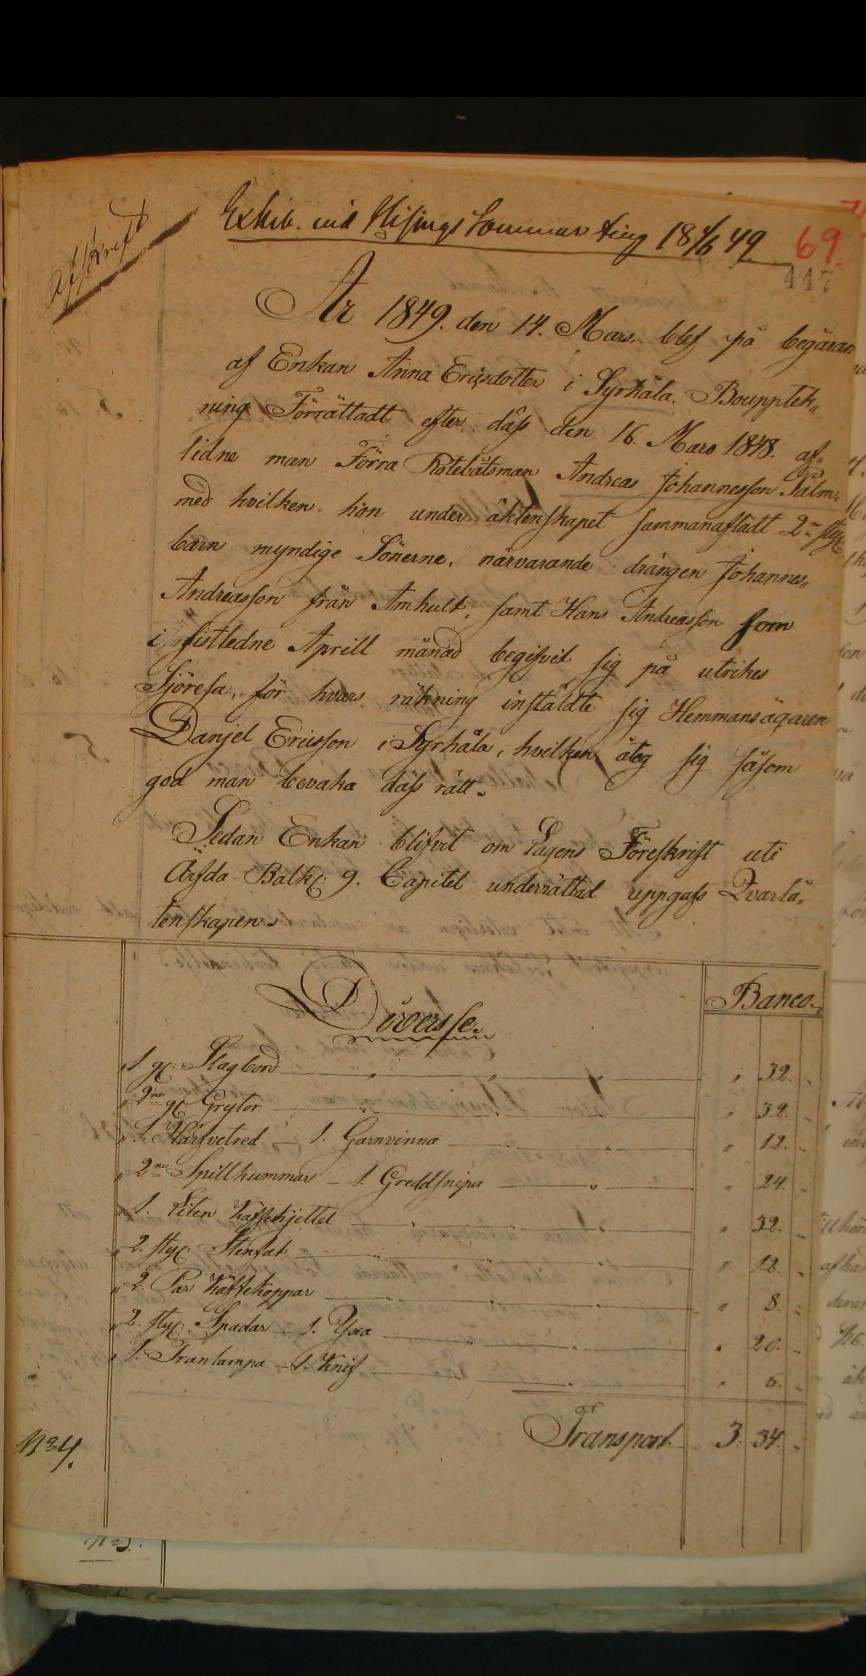 Afskrift
Exhib. vid Hisings Sommar ting 18 4/6 49
69
447
År 1849. den 14. Mars. blef på begäran
af Enkan Anna Ericsdotter i Syrhåla. Bouppteck„
ning Förrättadt efter däss den 16. Mars 1848. af„
lidne man Förra Rotebåtsman Andreas Johannesson Palm,
med hvilken hon under äktenskapet sammanafladt 2ne styc
barn myndige Sönerne, närvarande drängen Johannes„
Andreasson från Amhult, samt Hans Andreasson som
i sistledne Aprill månad begifvit sig på utrikes
Sjöresa, för hvars räkning inställdte sig Hemmansägaren
Danjel Ericsson i Syrhåla, hvilken åtog sig såsom
god man bevaka däss rätt.
Sedan Enkan blifvit om Lagens Föreskrift uti
Ärfda Balk: 9. Capitel underrättad uppgafs Qvarlå„
tenskapen.
Diversse.
Banco.
1 gl: Slagbord " 32. "
2ne gl Grytor " 32. "
1. Härfvetred – 1. Garnvinna " 12. "
2ne Spillkummar – 1. Greddsnipa " 24. "
1. Liten Kaffekjettel " 32. "
2. styc: Stenfat " 12. "
2. Par Kaffekoppar " 8. "
2. styc: Spadar – 1. Yxa " 20. "
1. Tranlampa – 1. Knif " 6. "
Transport 3. 34. "
No 4.